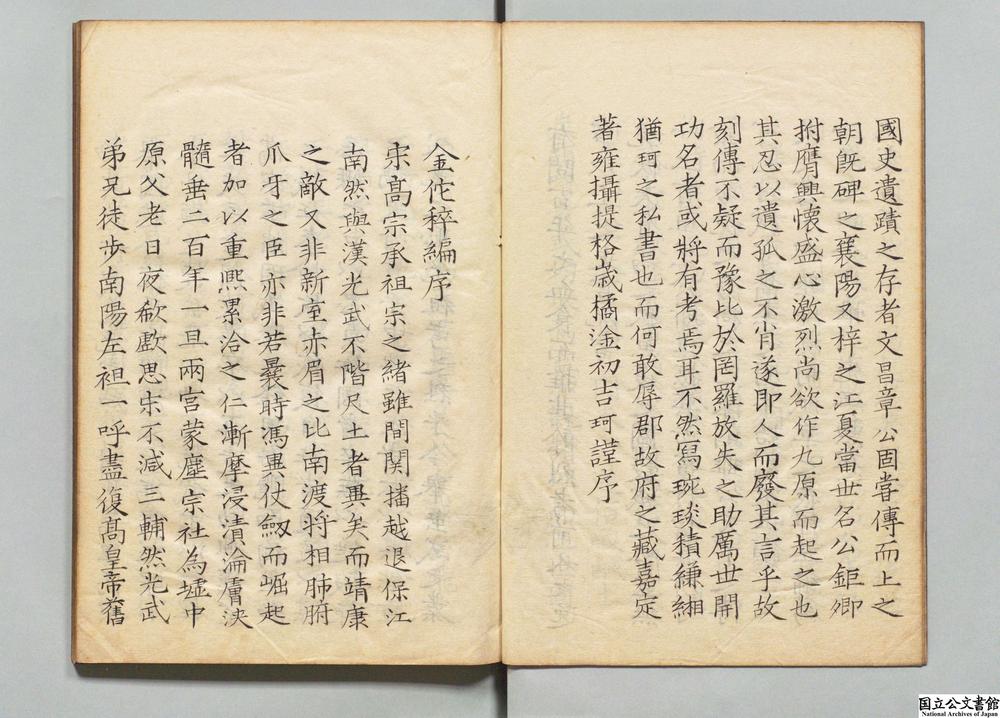 國史遺蹟之存者文昌章公固嘗傳而上之
朝旣碑之襄陽又梓之江夏當世名公鉅卿
拊膺興懷盛心激烈尚欲作九原而起之也
其忍以遺孤之不肖遂即人而廢其言乎故
刻傳不疑而豫比於罔羅放失之助厲世開
功名者或將有考焉耳不然寫琬琰積縑緗
猶珂之私書也而何敢辱郡故府之藏嘉定
著雍攝提格歲橘涂初吉珂謹序
金佗稡編序
宋髙宗承祖宗之緒雖間関播越退保江
南然與漢光武不階尺土者異矣而靖康
之敵又非新室赤眉之比南渡將相肺腑
爪牙之臣亦非若曩時馮異仗劔而崛起
者加以重熈累洽之仁漸摩浸漬淪膚浹
髓垂二百年一旦兩宮蒙塵宗社為墟中
原父老日夜欷歔思宋不減三輔然光武
弟兄徒步南陽左袒一呼盡復髙皇帝舊
国立公文書館
National Archives of Japan